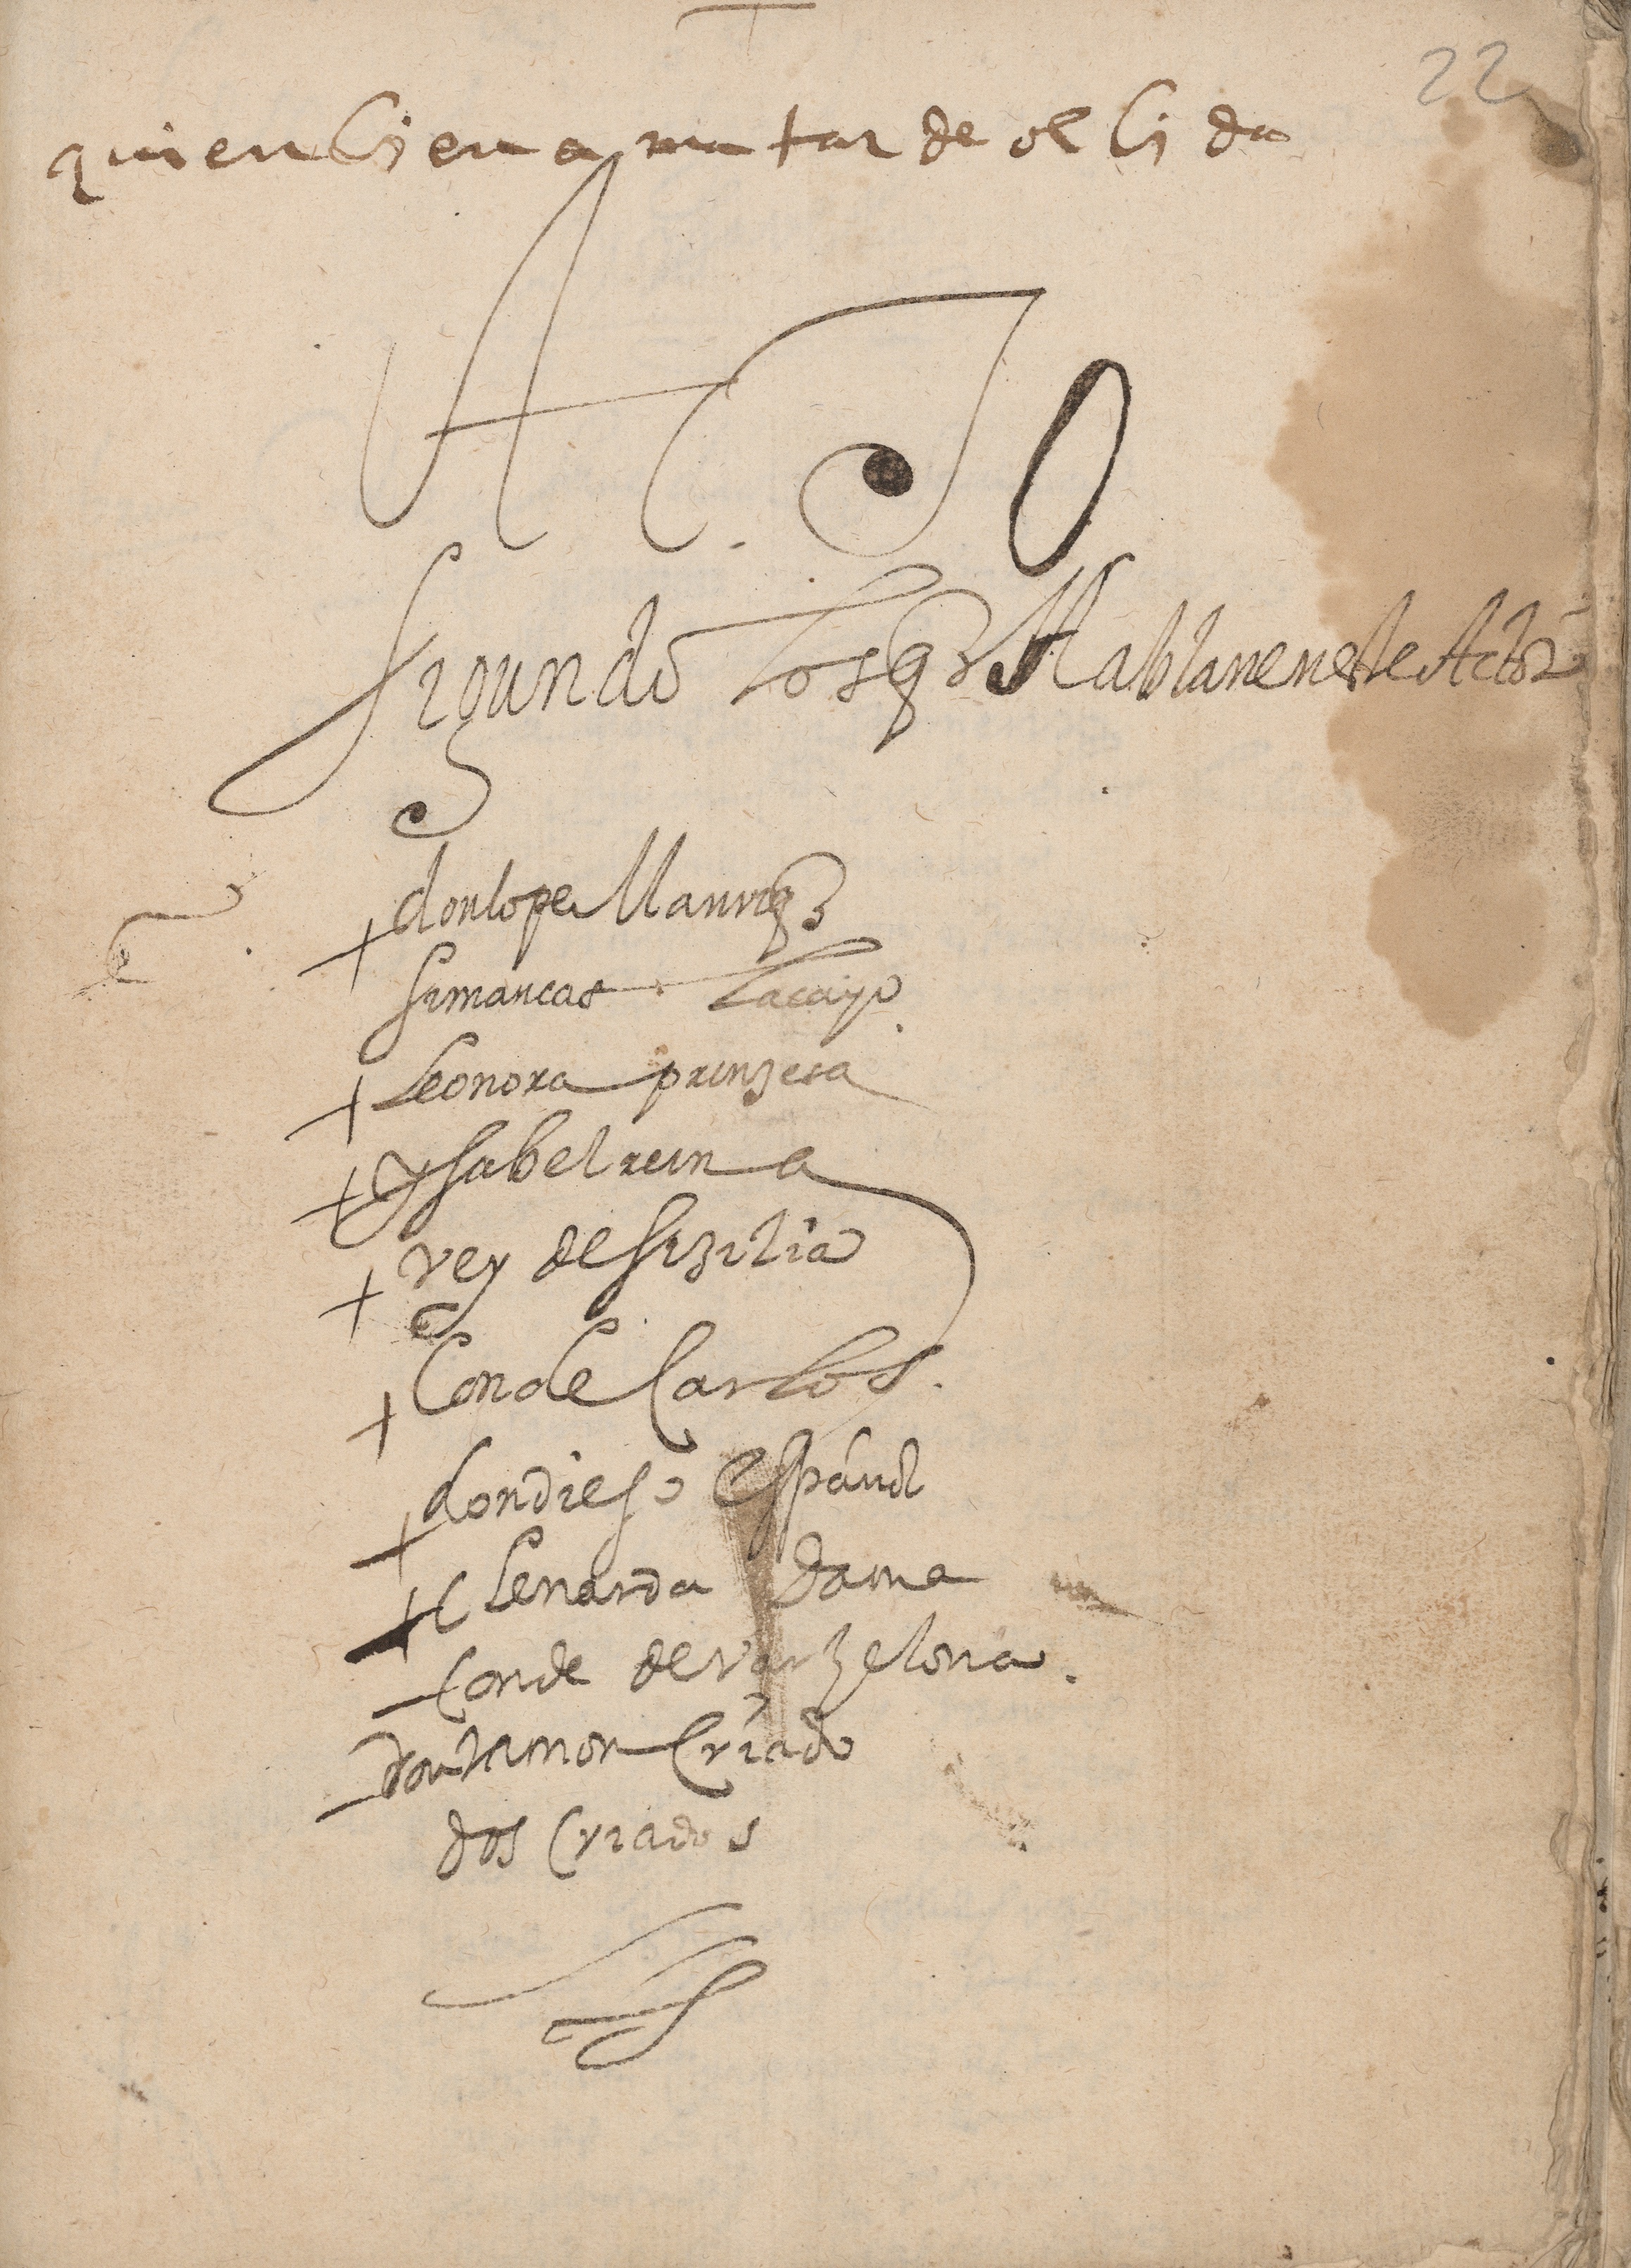 22
quien bien ama tar de olbida
ACTO
segundo Los q Hablan en este Acto 2
don lope Manriq
simancas Lacayo
Leonora prinzesa
ysabel reina
rey de sizilia
Conde Carlos
don diego español
Lenarda Dama
Conde de varzelona
don ramon Criado
dos Criados